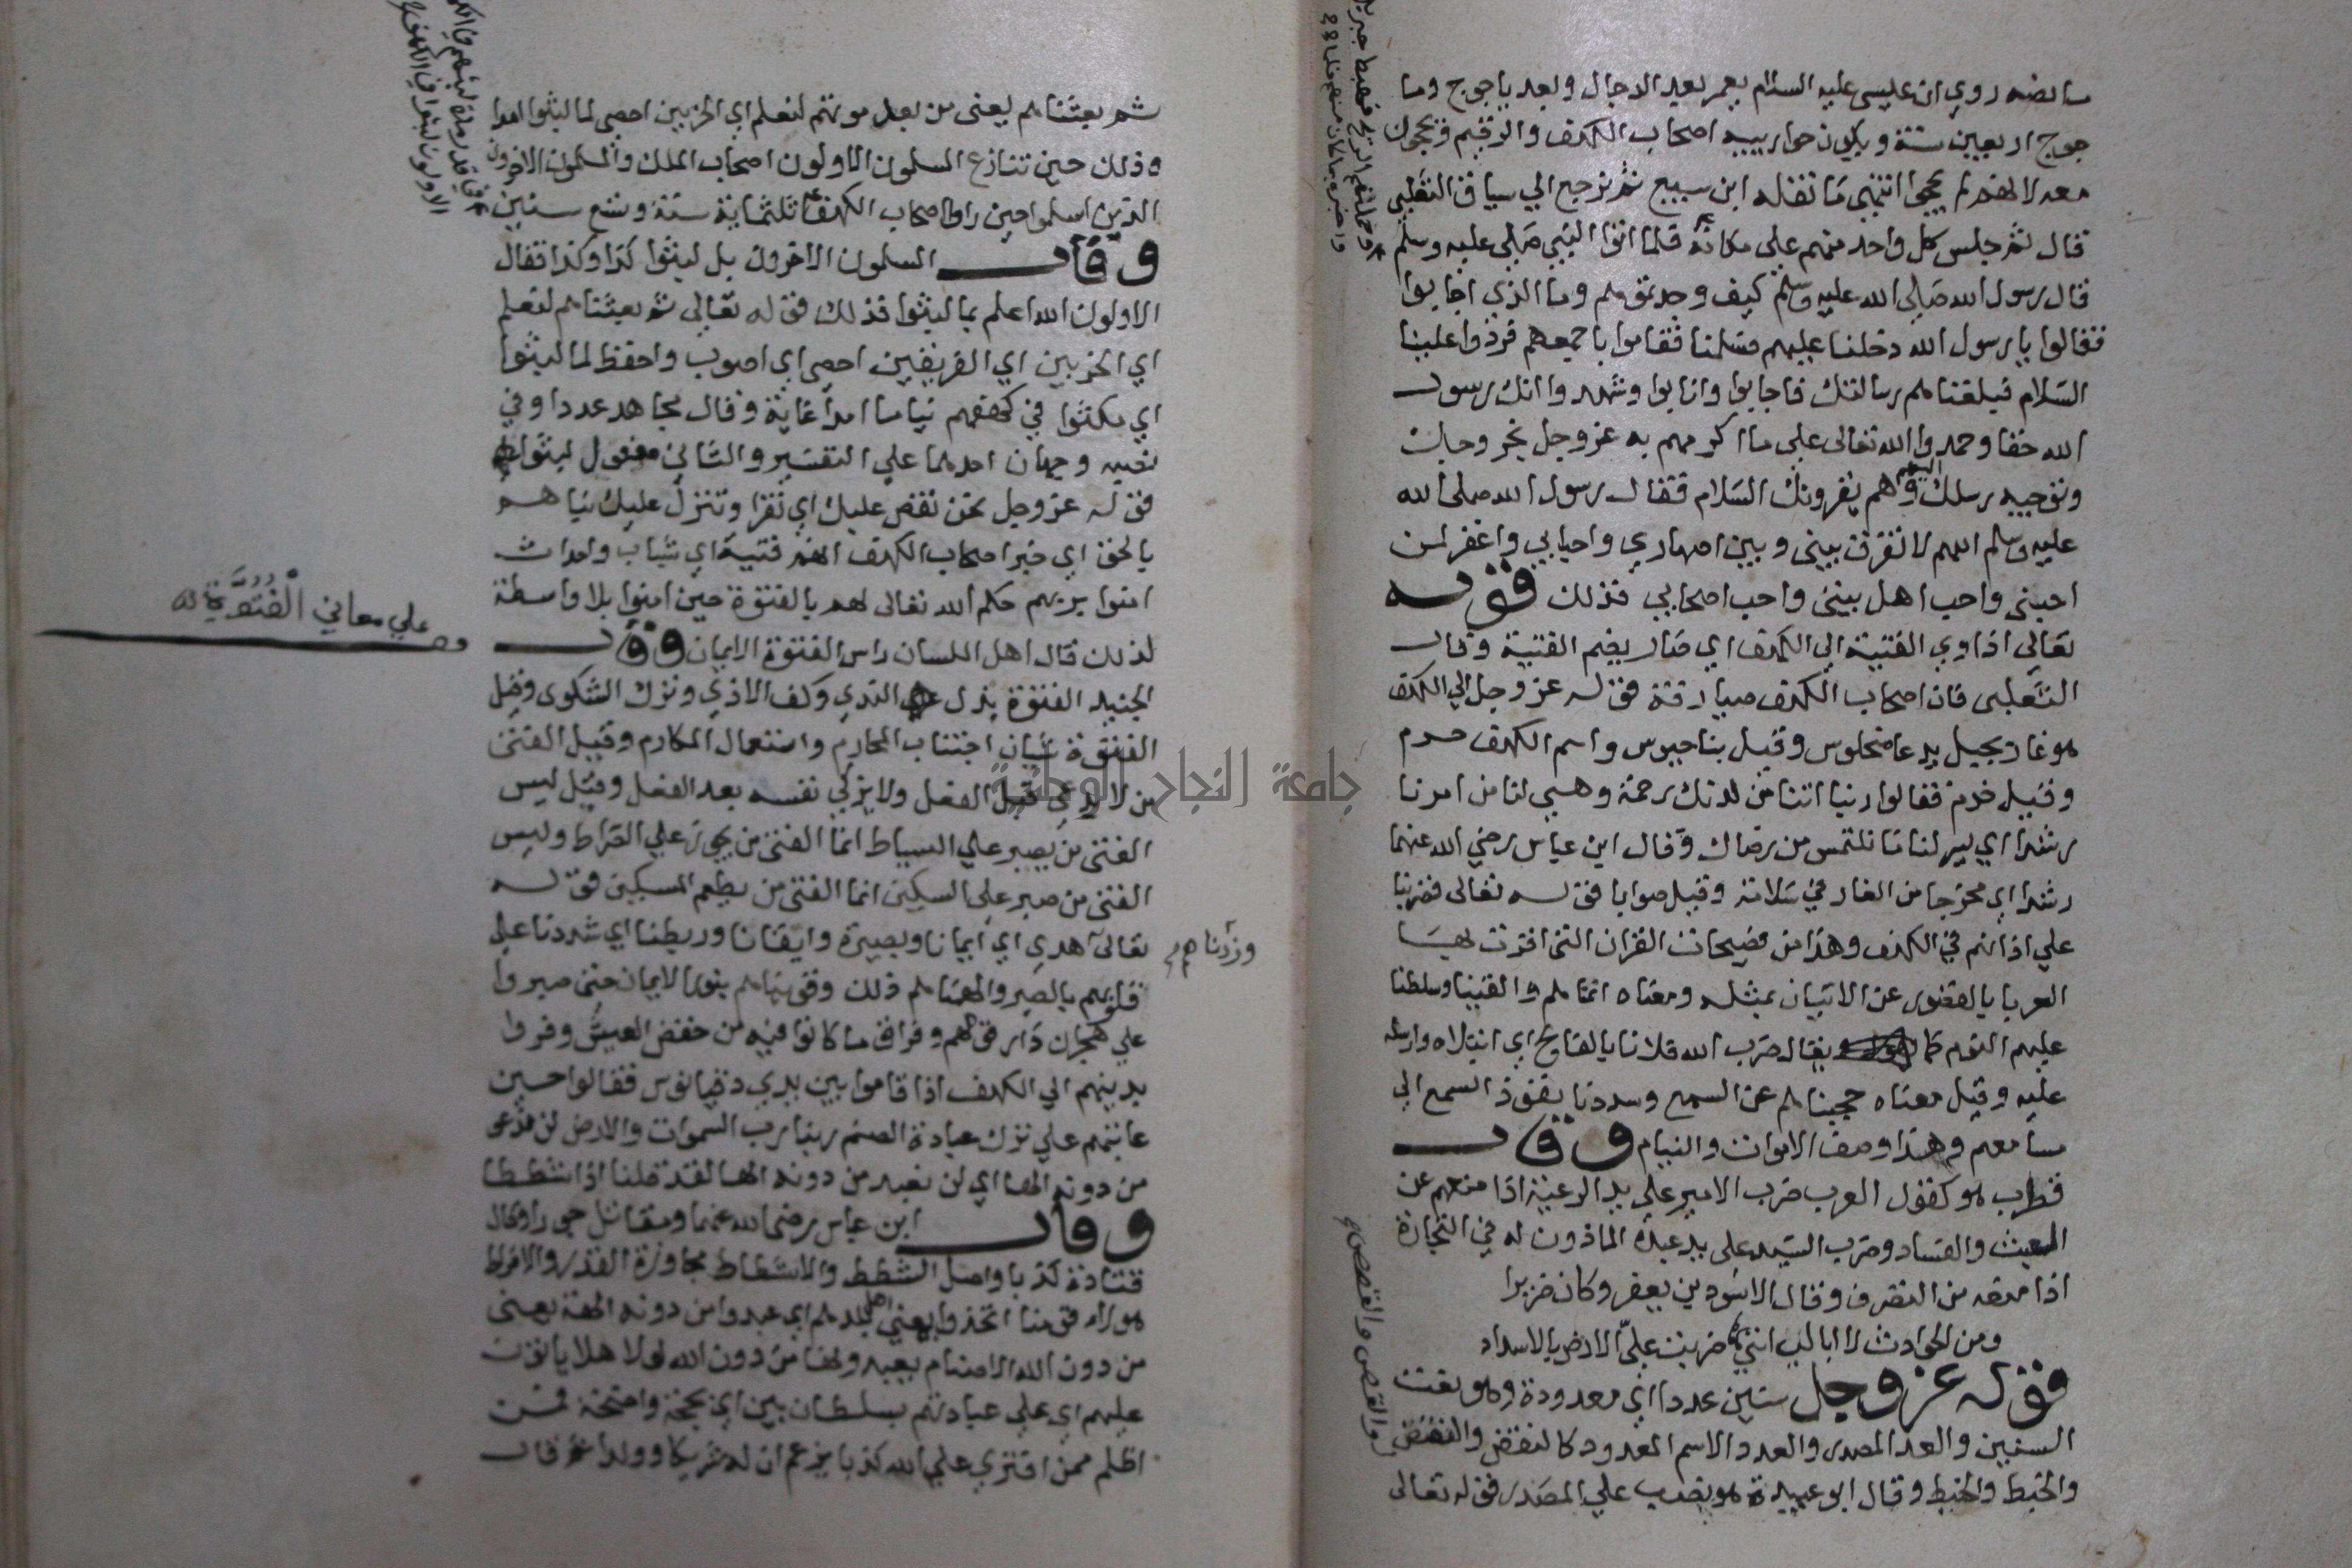 ما نصه روي ان عليسى عليه السلام يعمر بعد الدجال وبعد ياجوج وما
جوج اربعين سنة ويكون حواربيه اصحاب الكهف والرقيم ويحجون
معه لانهم لم يحجوا انتهى ما نقله ابن سبيع ثم نرجع الي سياق الثعلبي
قال ثم جلس كل واحد منهم على مكانه فلما اتوا النبي صلى عليه وسلم
قال رسول الله صلى الله عليه وسلم كيف وجدتموهم وما الذي اجابوا
فقالوا يا رسول الله دخلنا عليهم فسلمنا فقاموا باجمعهم فردوا علينا
السلام فبلغناهم رسالتك فاجابوا وانابوا وشهدوا انك رسول
الله حقا وحمدوا الله تعالى على ما اكرمهم به عز وجل بخروجك
وتوجيه رسلك اليهم وهم يقرونك السلام فقال رسول الله صلى الله
عليه وسلم اللهم لا تفرق بيني وبين اصهاري واحبابي واغفر لمن
احبني واحب اهل بيتي واحب اصحابي فذلك قوله
تعالى اذ اوي الفتية الي الكهف اي صار بضم الفتية وقال
الثعلبى فان اصحاب الكهف صيارفة قوله عز وجل الي الكهف
هو غار بجبل يدعا منحلوس وقيل بناجيوس واسم الكهف حرم
وقيل خدم فقالوا ربنا اتنا من لدنك رحمة وهيي لنا من امرنا
رشدا اي يسر لنا ما نلتمس من رضاك وقال ابن عباس رضي الله عنهما
رشدا اي مخرجا من الغار في سلامة وقيل صوابا قوله تعالى فضربنا
علي اذانهم في الكهف وهذا من فصيحات القران التي اقرت بها
العرب بالقصور عن الاتيان بمثله ومعناه انمناهم والقينا وسلطنا
عليهم النوم كما يقال ضرب الله فلانا بالفالج اي ابتلاه وارسله
عليه وقيل معناه حجبناهم عن السمع وسددنا نفوذ السمع الي
مسامعهم وهذا وصف الاموات والنيام وقال
قطرب هو كقول العرب ضرب الامير علي يد الرعية اذا منعهم عن
العبث والفساد وضرب السيد على يد عبده الماذون له في التجارة
اذا منعه من التصرف وقال الاسود بن يعفر وكان ضريرا
ومن الحوادث لا ابا لك انني ضربت علي الارض بالاسداد
قوله عز وجل سنين عددا اي معدودة وهو نعت
السنين والعد المصدر والعدد الاسم المعدود كالنقض والنقض
والخبط والخبط وقال ابو عبيدة هو نصب علي المصدر قوله تعالى
والقصص والقصص
ثم بعثناهم يعني من بعد موتهم لنعلم اي الحزبين احصى لما لبثوا امدا
وذلك حين تنازع المسلمون الاولون اصحاب الملك والمسلمون الاخرون
الذين اسلموا حين راوا اصحاب الكهف ثلثماية سنة وتسع سنين
وقال المسلمون الاخرون بل لبثوا كذا وكذا فقال
الاولون الله اعلم بما لبثوا فذلك قوله تعالى ثم بعثناهم لنعلم
اي الحزبين اي الفريقين احصى اي اصوب واحفظ لما لبثوا
اي مكثوا في كهفهم نياما امدا غاية وقال مجاهد عددا وفي
نصبه وجهان احدهما علي التفسير والثاني مفعول لبثوا
قوله عز وجل نحن نقص عليك اي نقرا وننزل عليك نباهم
بالحق اي خبر اصحاب الكهف انهم فتية اي شباب واحداث
امنوا بربهم حكم الله تعالى لهم بالفتوة حين امنوا بلا واسطة
لذلك قال اهل اللسان راس الفتوة الايمان وقال
الجنيد الفتوة بذل الندي وكف الاذي وترك الشكوى وقيل
الفتوة شيان اجتناب المحارم واستعمال المكارم وقيل الفتى
من لا يدعي قبل الفعل ولا يزكي نفسه بعد الفعل وقيل ليس
الفتى من يصبر علي السياط انما الفتى من يجوز علي الصراط وليس
الفتى من صبر علي السكين انما الفتى من يطعم المسكين قوله
تعالى وزدناهم هدي اي ايمانا وبصيرة وايقانا وربطنا اي شددنا علي
قلوبهم بالصبر والهمناهم ذلك وقويناهم بنور الايمان حتى صبروا
علي هجران دار قومهم وفراق ما كانوا فيه من خفض العيش وفروا
بدينهم الي الكهف اذ قاموا بين يدي دقيانوس فقالوا حسين
عاتبهم علي ترك عبادة الصنم ربنا رب السموات والارض لن ندعو
من دونه الها اي لن نعبد من دونه الها لقد قلنا اذا شططا
وقال ابن عباس رضى الله عنهما ومقاتل جورا وقال
قتادة كذبا واصل الشطط والاشطاط مجاوزة القدر والافراط
هولاء قومنا اتخذوا يعني اهل بلدهم اي عبدوا من دونه الهة يعني
من دون الله الاصنام يعبدونها من دون الله لولا هلا ياتون
عليهم اي علي عبادتهم بسلطان بين اي بحجة واضحة فمن
اظلم ممن افترى علي الله كذبا يزعم ان له شريكا وولدا ثم قال
علي معاني الْفُتُوَّة
جامعة النجاح الوطنية